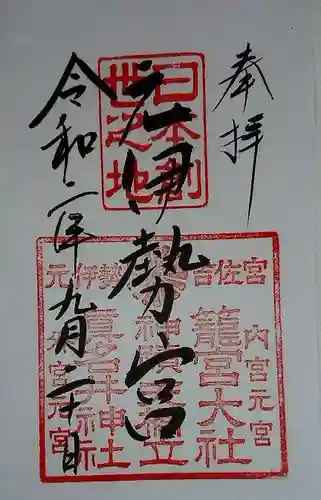 奉拝
日本創
世之地
元伊勢宮
令和二年九月二十日
元伊勢 吉佐宮
内宮元宮
籠宮大社
井神社
宮元宮